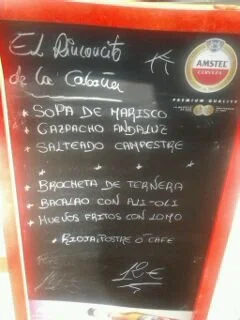 El Rinconcito
de la Cabaña
AMSTEL
CERVEZA
PREMIUM QUALITY
* SOPA DE MARISCO
* GAZPACHO ANDALUZ
* SALTEADO CAMPESTRE
* * *
* BROCHETA DE TERNERA
* BACALAO CON ALI-OLI
* HUEVOS FRITOS CON LOMO
* RIOJA, POSTRE Ó CAFE